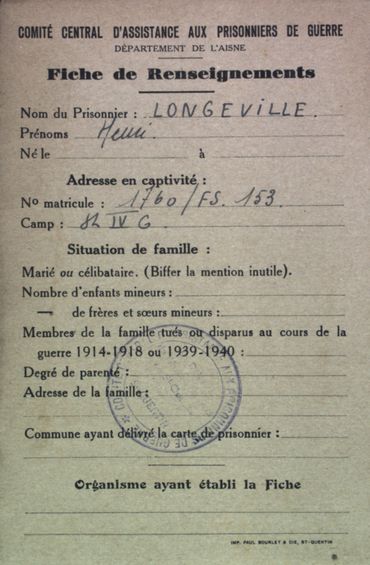 COMITÉ CENTRAL D'ASSISTANCE AUX PRISONNIERS DE GUERRE
DÉPARTEMENT DE L'AISNE
Fiche de Renseignements
Nom du Prisonnier : LONGEVILLE.
Prénoms Henri.
Né le à
Adresse en captivité :
No matricule : 1760/FS. 153.
Camp : IV G
Situation de famille :
Marié ou célibataire. (Biffer la mention inutile).
Nombre d'enfants mineurs :
— de frères et sœurs mineurs :
Membres de la famille tués ou disparus au cours de la
guerre 1914-1918 ou 1939-1940 :
Degré de parenté :
Adresse de la famille :
Commune ayant délivré la carte de prisonnier :
Organisme ayant établi la Fiche
IMP. PAUL BOURLET & CIE, ST-QUENTIN